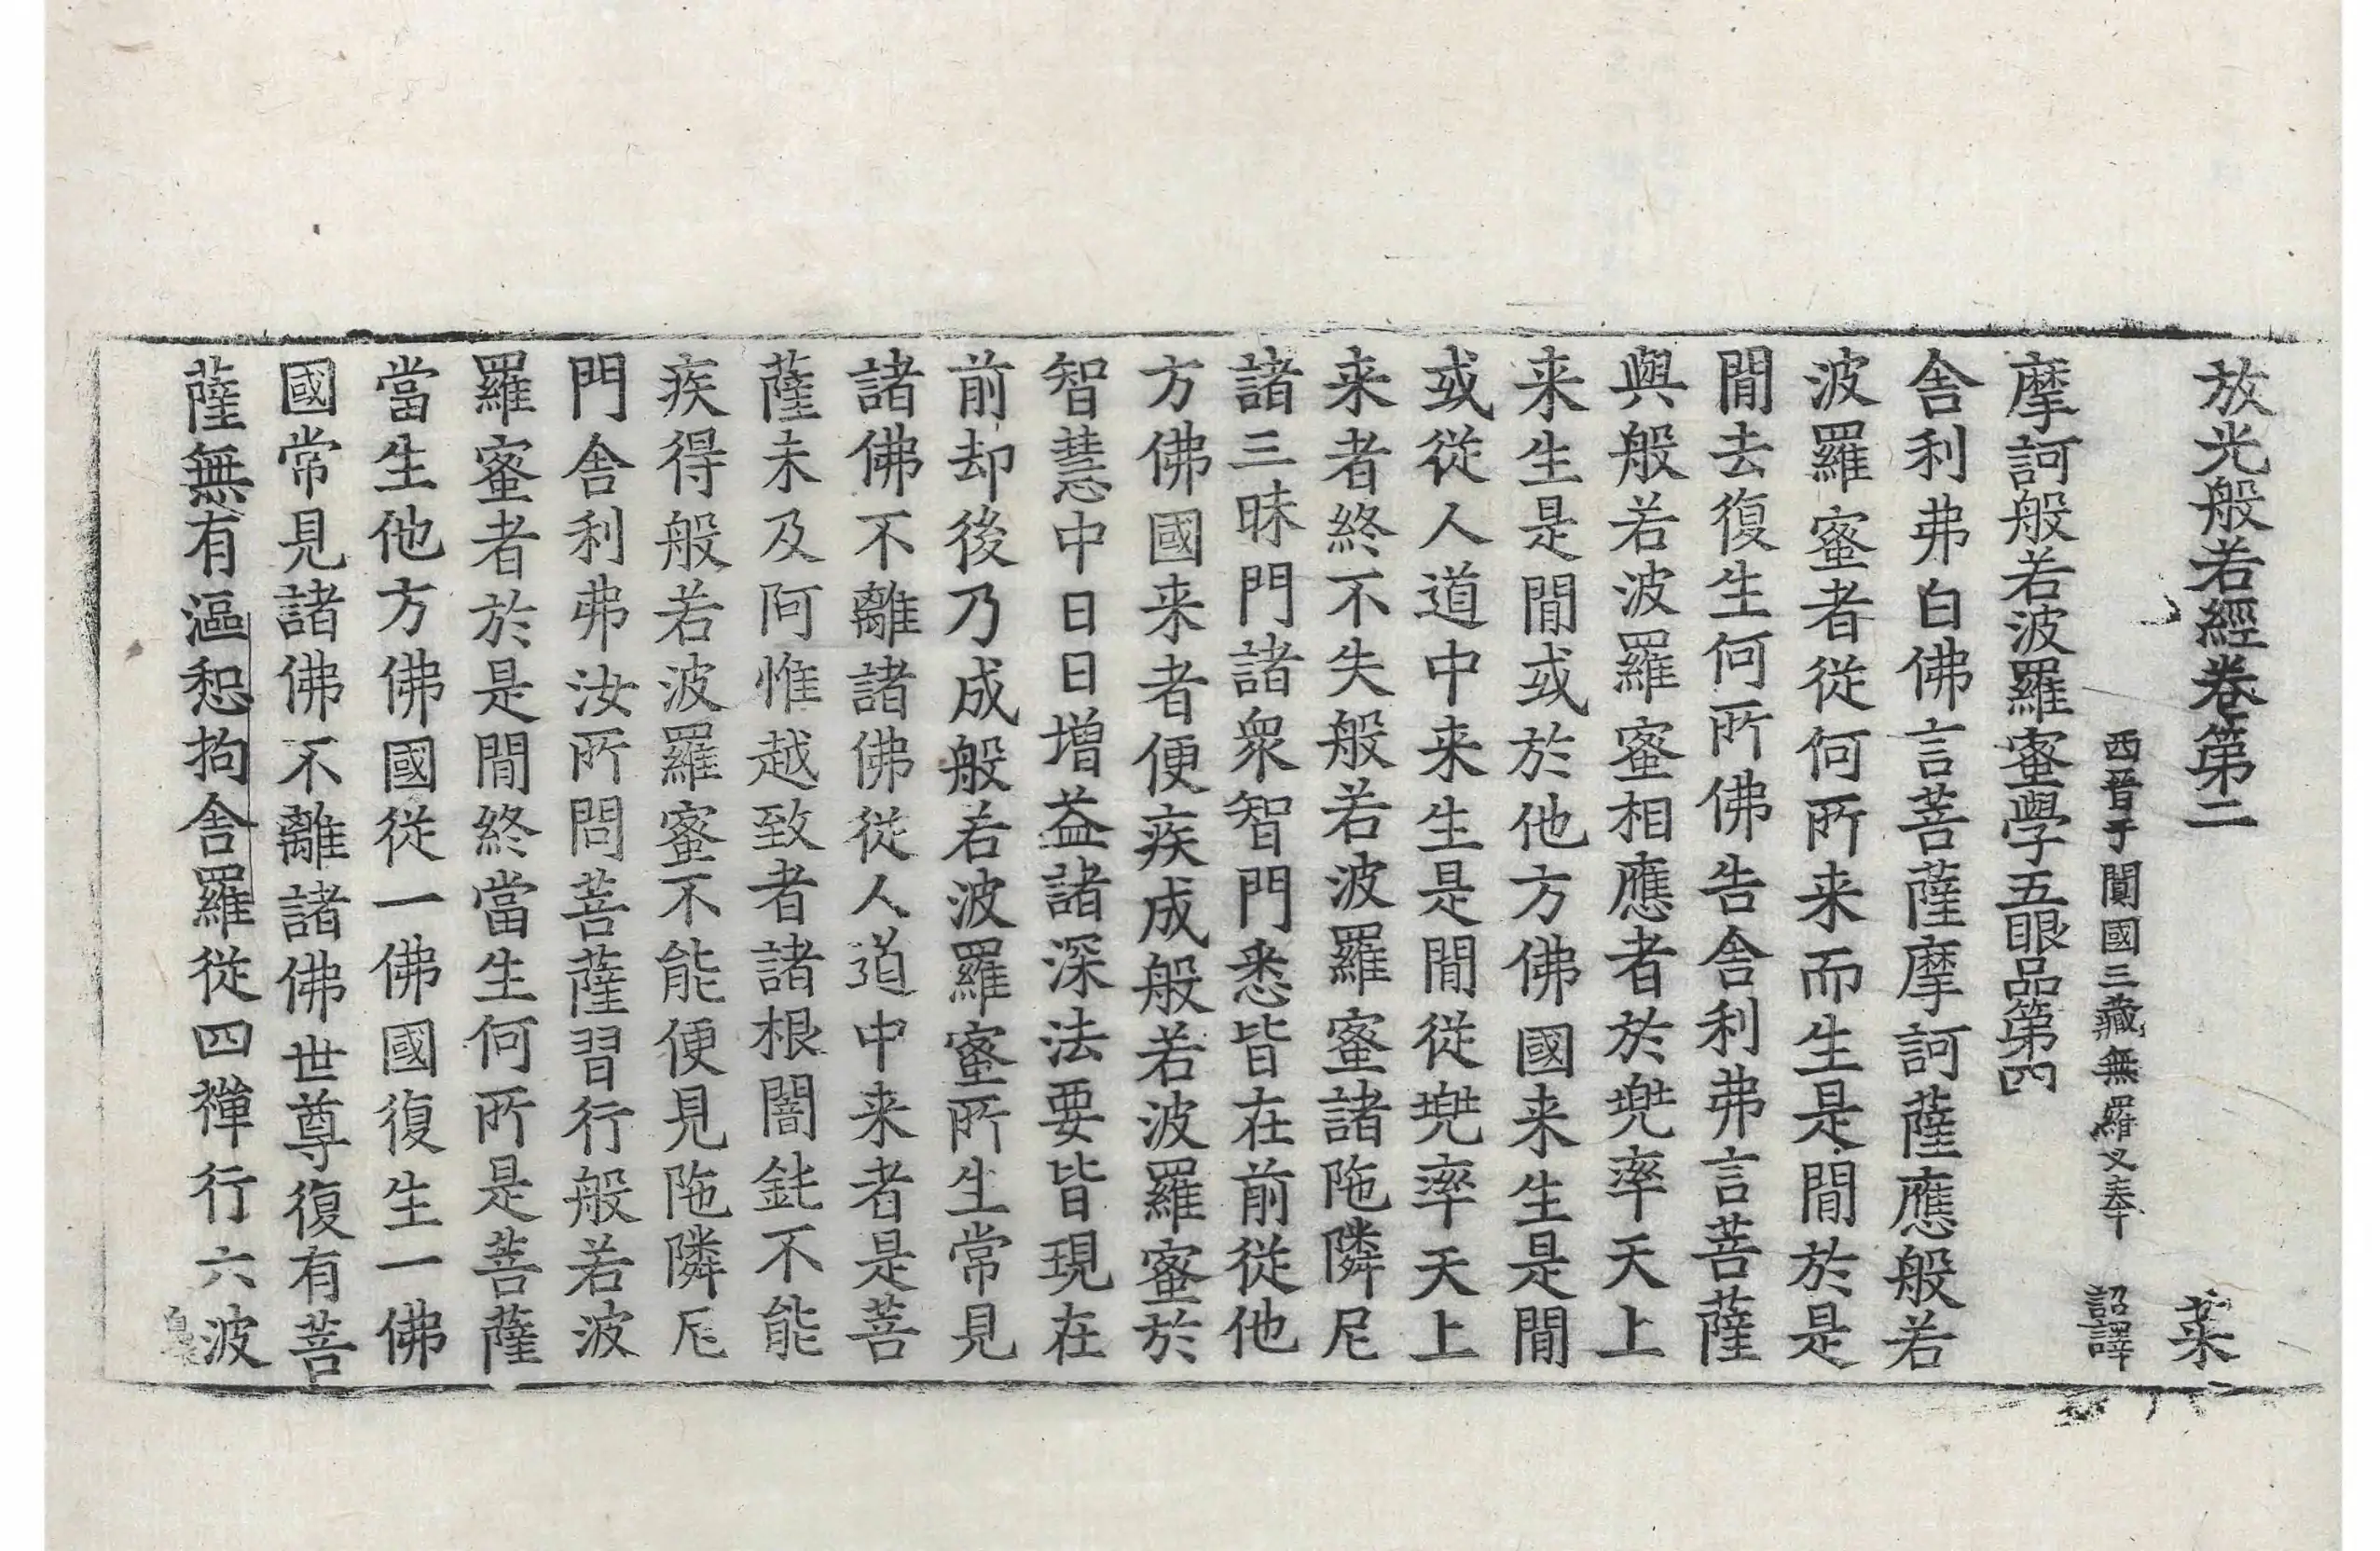 放光般若經卷第二 菜
西晉于闐國三藏無羅叉奉 詔譯
摩訶般若波羅蜜學五眼品第四
舍利弗白佛言菩薩摩訶薩應般若
波羅蜜者從何所来而生是間於是
間去復生何所佛告舍利弗言菩薩
與般若波羅蜜相應者於兠率天上
来生是間或於他方佛國来生是間
或從人道中来生是間從兠率天上
来者終不失般若波羅蜜諸陁隣尼
諸三昧門諸衆智門悉皆在前從他
方佛國来者便疾成般若波羅蜜於
智慧中日日增益諸深法要皆現在
前却後乃成般若波羅蜜所生常見
諸佛不離諸佛從人道中来者是菩
薩未及阿惟越致者諸根闇鈍不能
疾得般若波羅蜜不能便見陁隣尼
門舍利弗汝所問菩薩習行般若波
羅蜜者於是間終當生何所是菩薩
當生他方佛國從一佛國復生一佛
國常見諸佛不離諸佛世尊復有菩
薩無有漚惒拘舍羅從四禪行六波